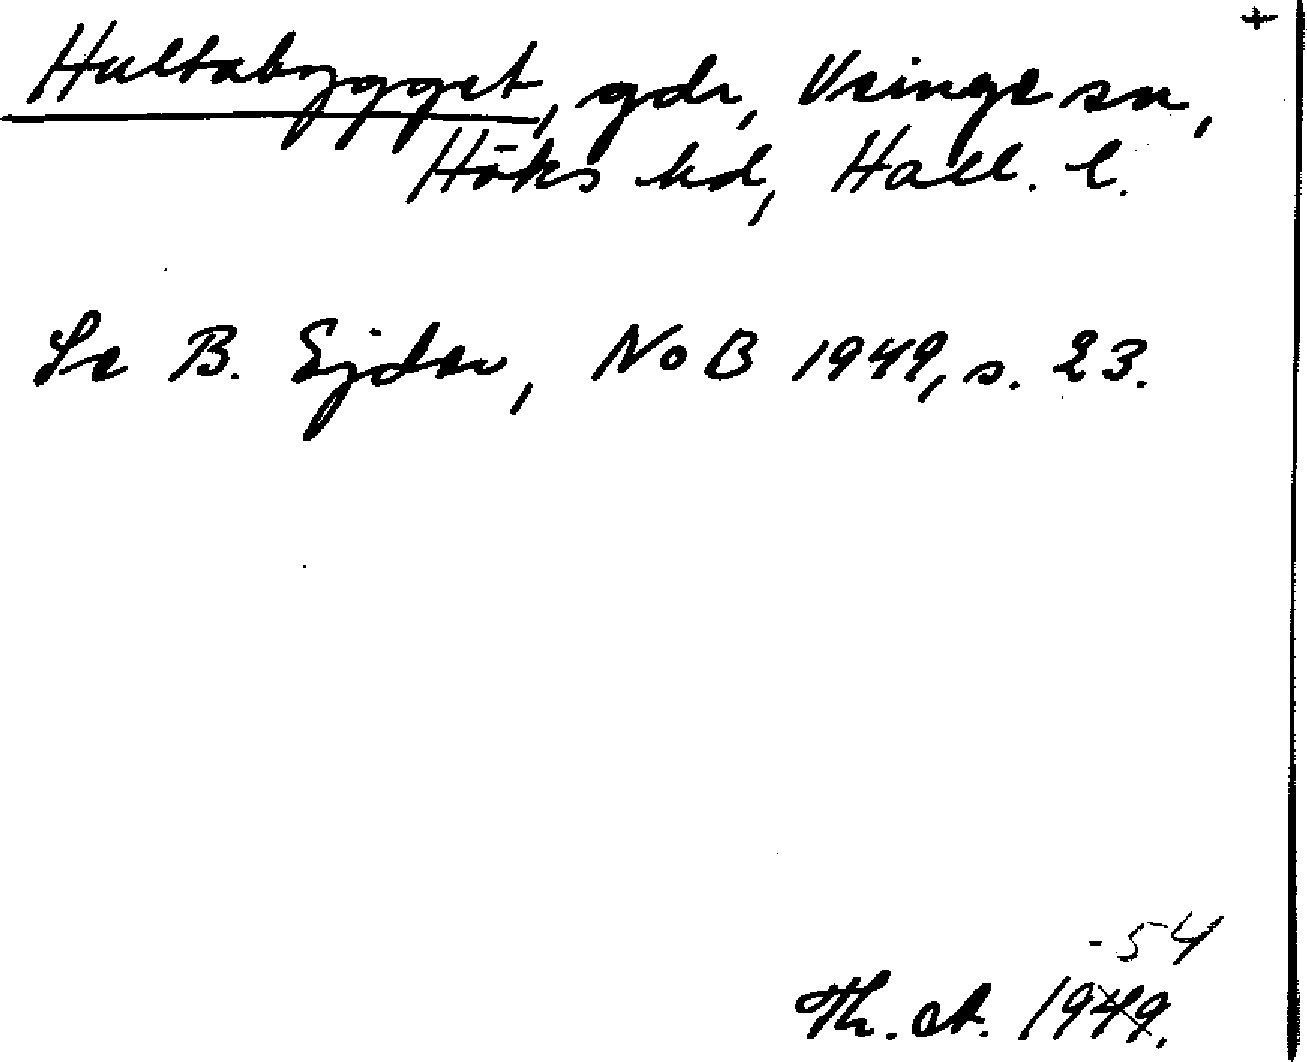 +
Hultabygget, gdr, Veinge sn,
Höks hd, Hall. l.
Se B. Ejder, NoB 1949, s. 23.
-54
Th. A. 1949.